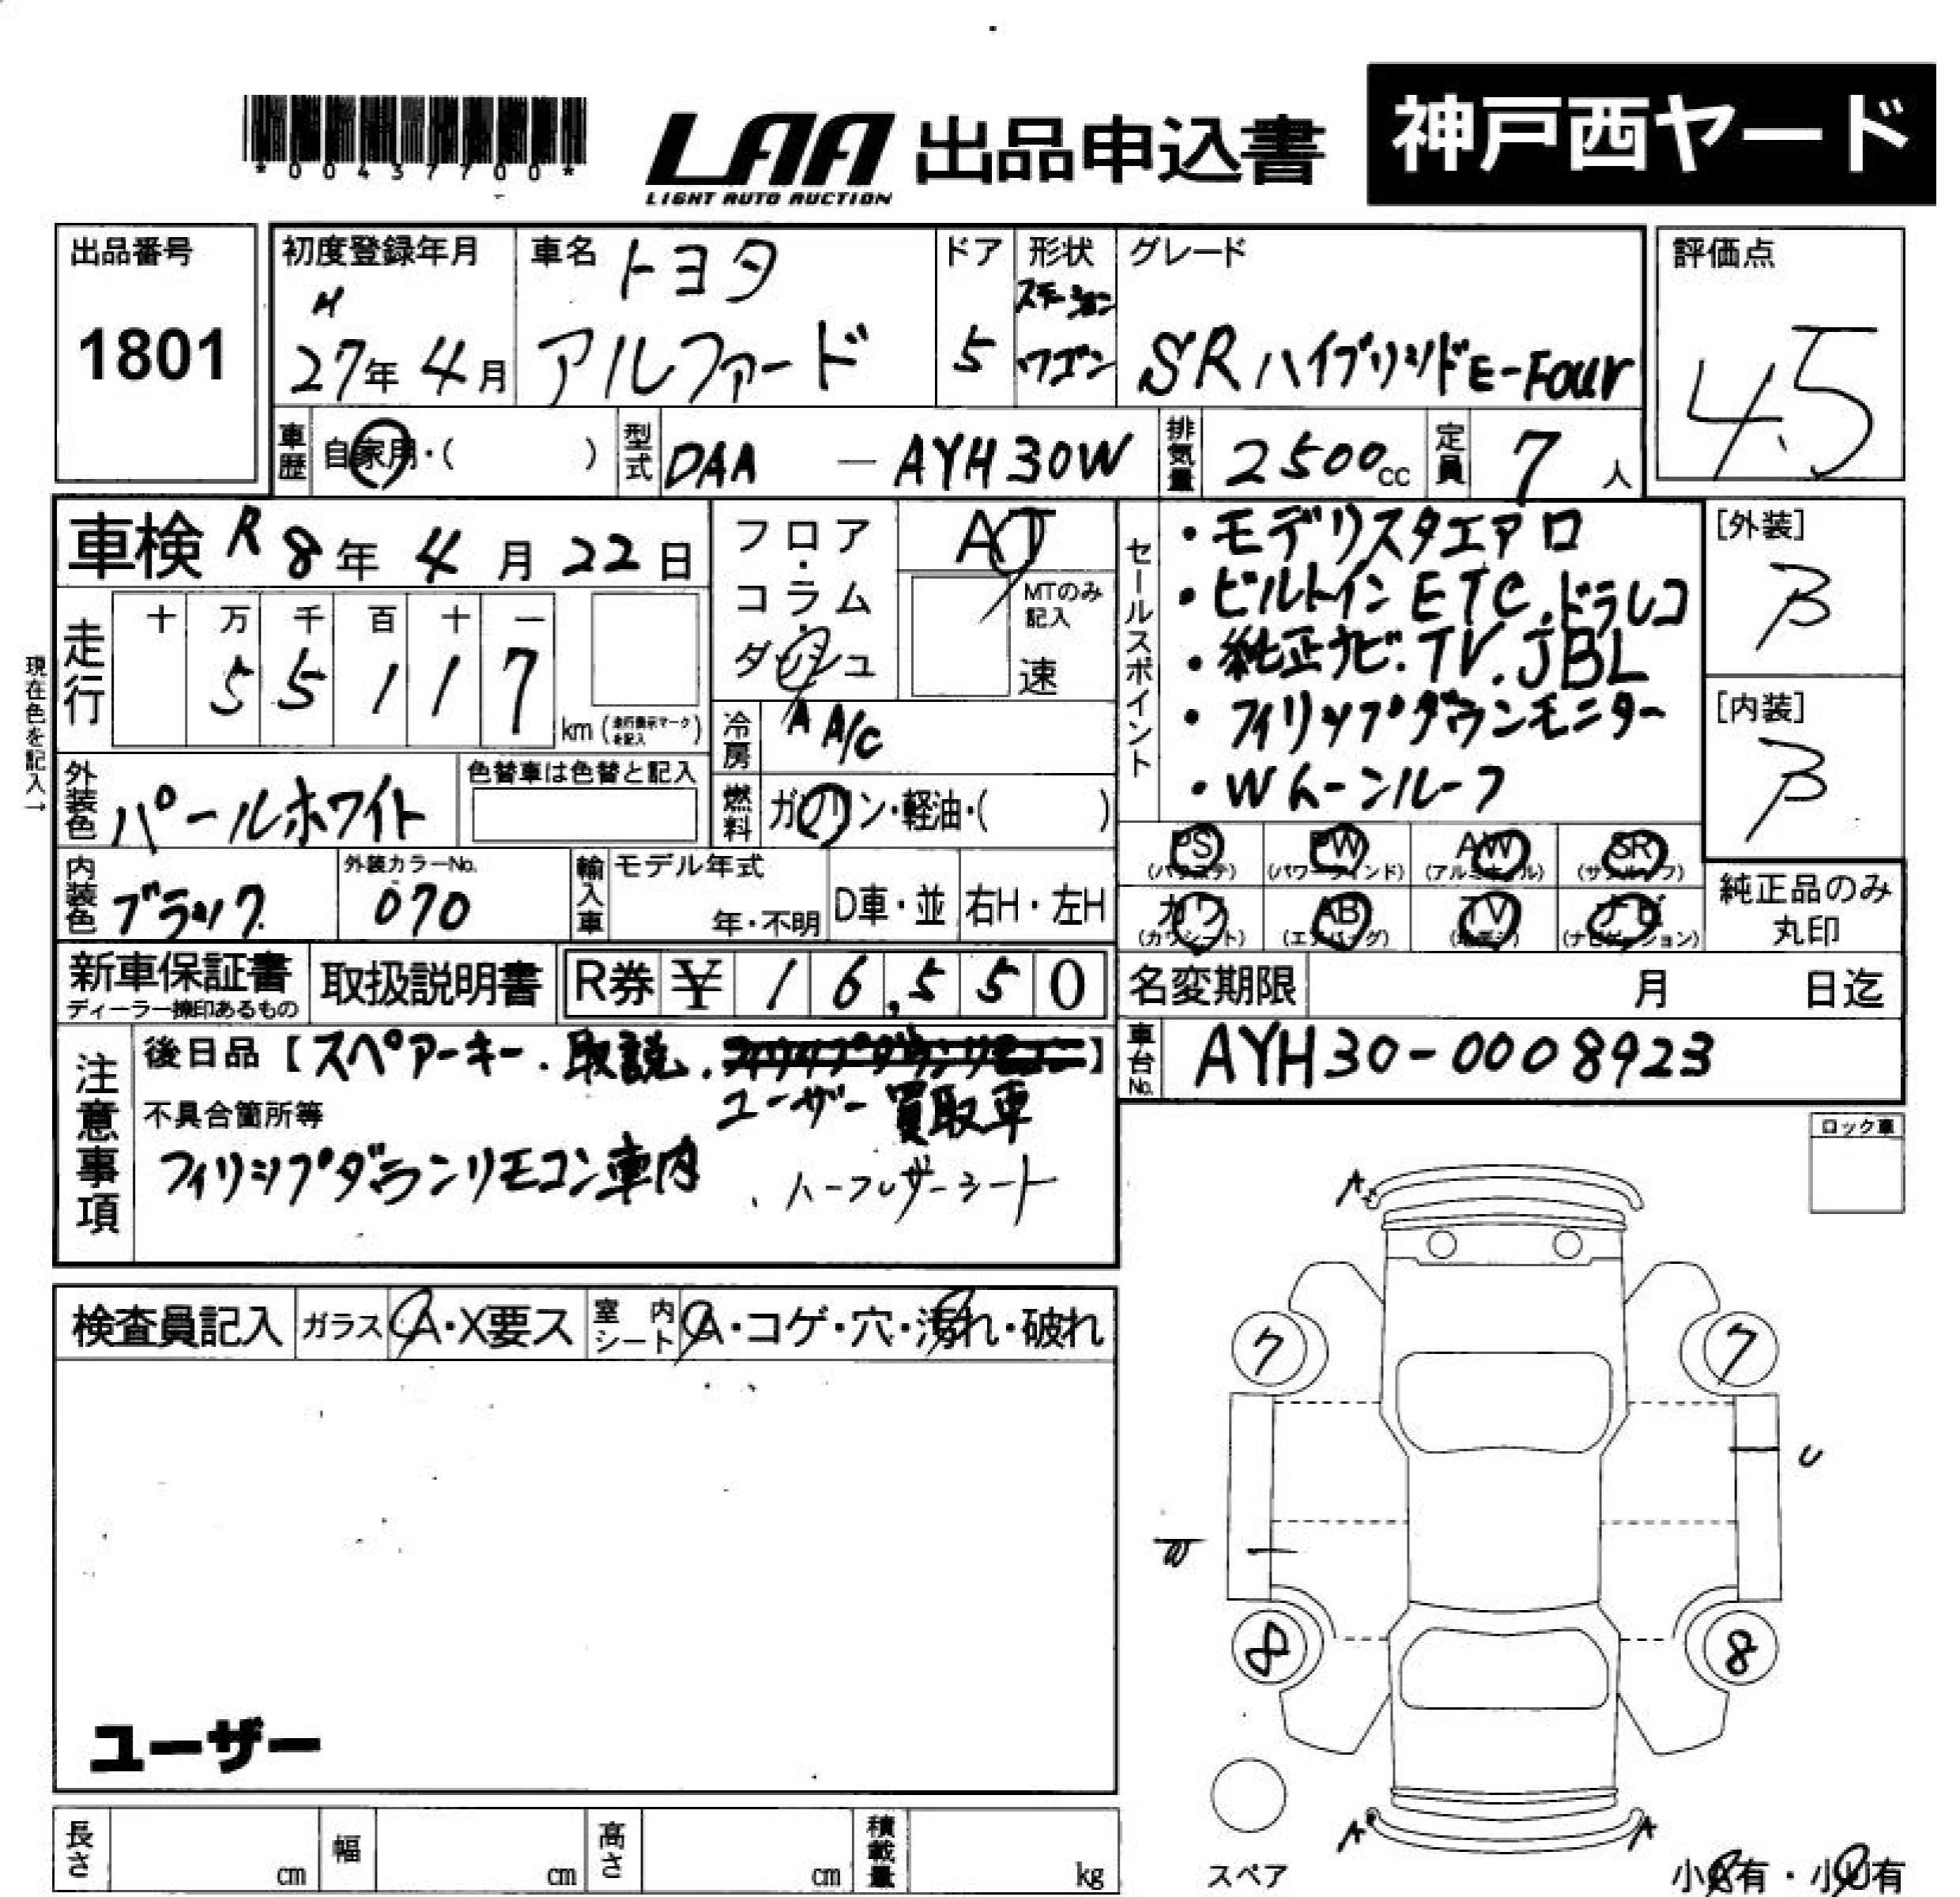 *00437700*
LAA 出品申込書 神戸西ヤード
LIGHT AUTO AUCTION
出品番号 1801
初度登録年月 H 27年 4月
車名 トヨタ アルファード
ドア 5
形状 ステーションワゴン
グレード SRハイブリッドE-Four
評価点 4.5
車歴 自家用・( )
型式 DAA — AYH30W
排気量 2500cc
定員 7人
車検 R 8年 4月 22日
フロア・コラム・ダッシュ
AT
MTのみ記入
速
セールスポイント
・モデリスタエアロ
・ビルトインETC.ドラレコ
・純正ナビ.TV.JBL
・フィリップダウンモニター
・Wムーンルーフ
[外装] B
[内装] B
現在色を記入→
走行 十 万 千 百 十 一
5 5 1 1 7
km (走行表示マークを記入)
冷房 AA/C
燃料 ガソリン・軽油・( )
外装色 パールホワイト
色替車は色替と記入
内装色 ブラック
外装カラーNo. 070
輸入車 モデル年式 年・不明 D車・並 右H・左H
PS (パワステ) PW (パワーウインド) AW (アルミホイル) SR (サンルーフ)
カワ (カワシート) AB (エアバッグ) TV (地デジ) ナビ (ナビゲーション)
純正品のみ丸印
新車保証書
ディーラー捺印あるもの
取扱説明書
R券 ¥ 16,550
名変期限 月 日迄
車台No. AYH30-0008923
注意事項
後日品【スペアーキー.取説. 】
ユーザー買取車
不具合箇所等
フィリップダウンリモコン車内 .ハーフレザーシート
ロック車
検査員記入 ガラス A・X要ス 室内シート A・コゲ・穴・汚れ・破れ
A
7 7
U
W
8 8
A A
ユーザー
長さ cm 幅 cm 高さ cm 積載量 kg
スペア
小A有・小U有